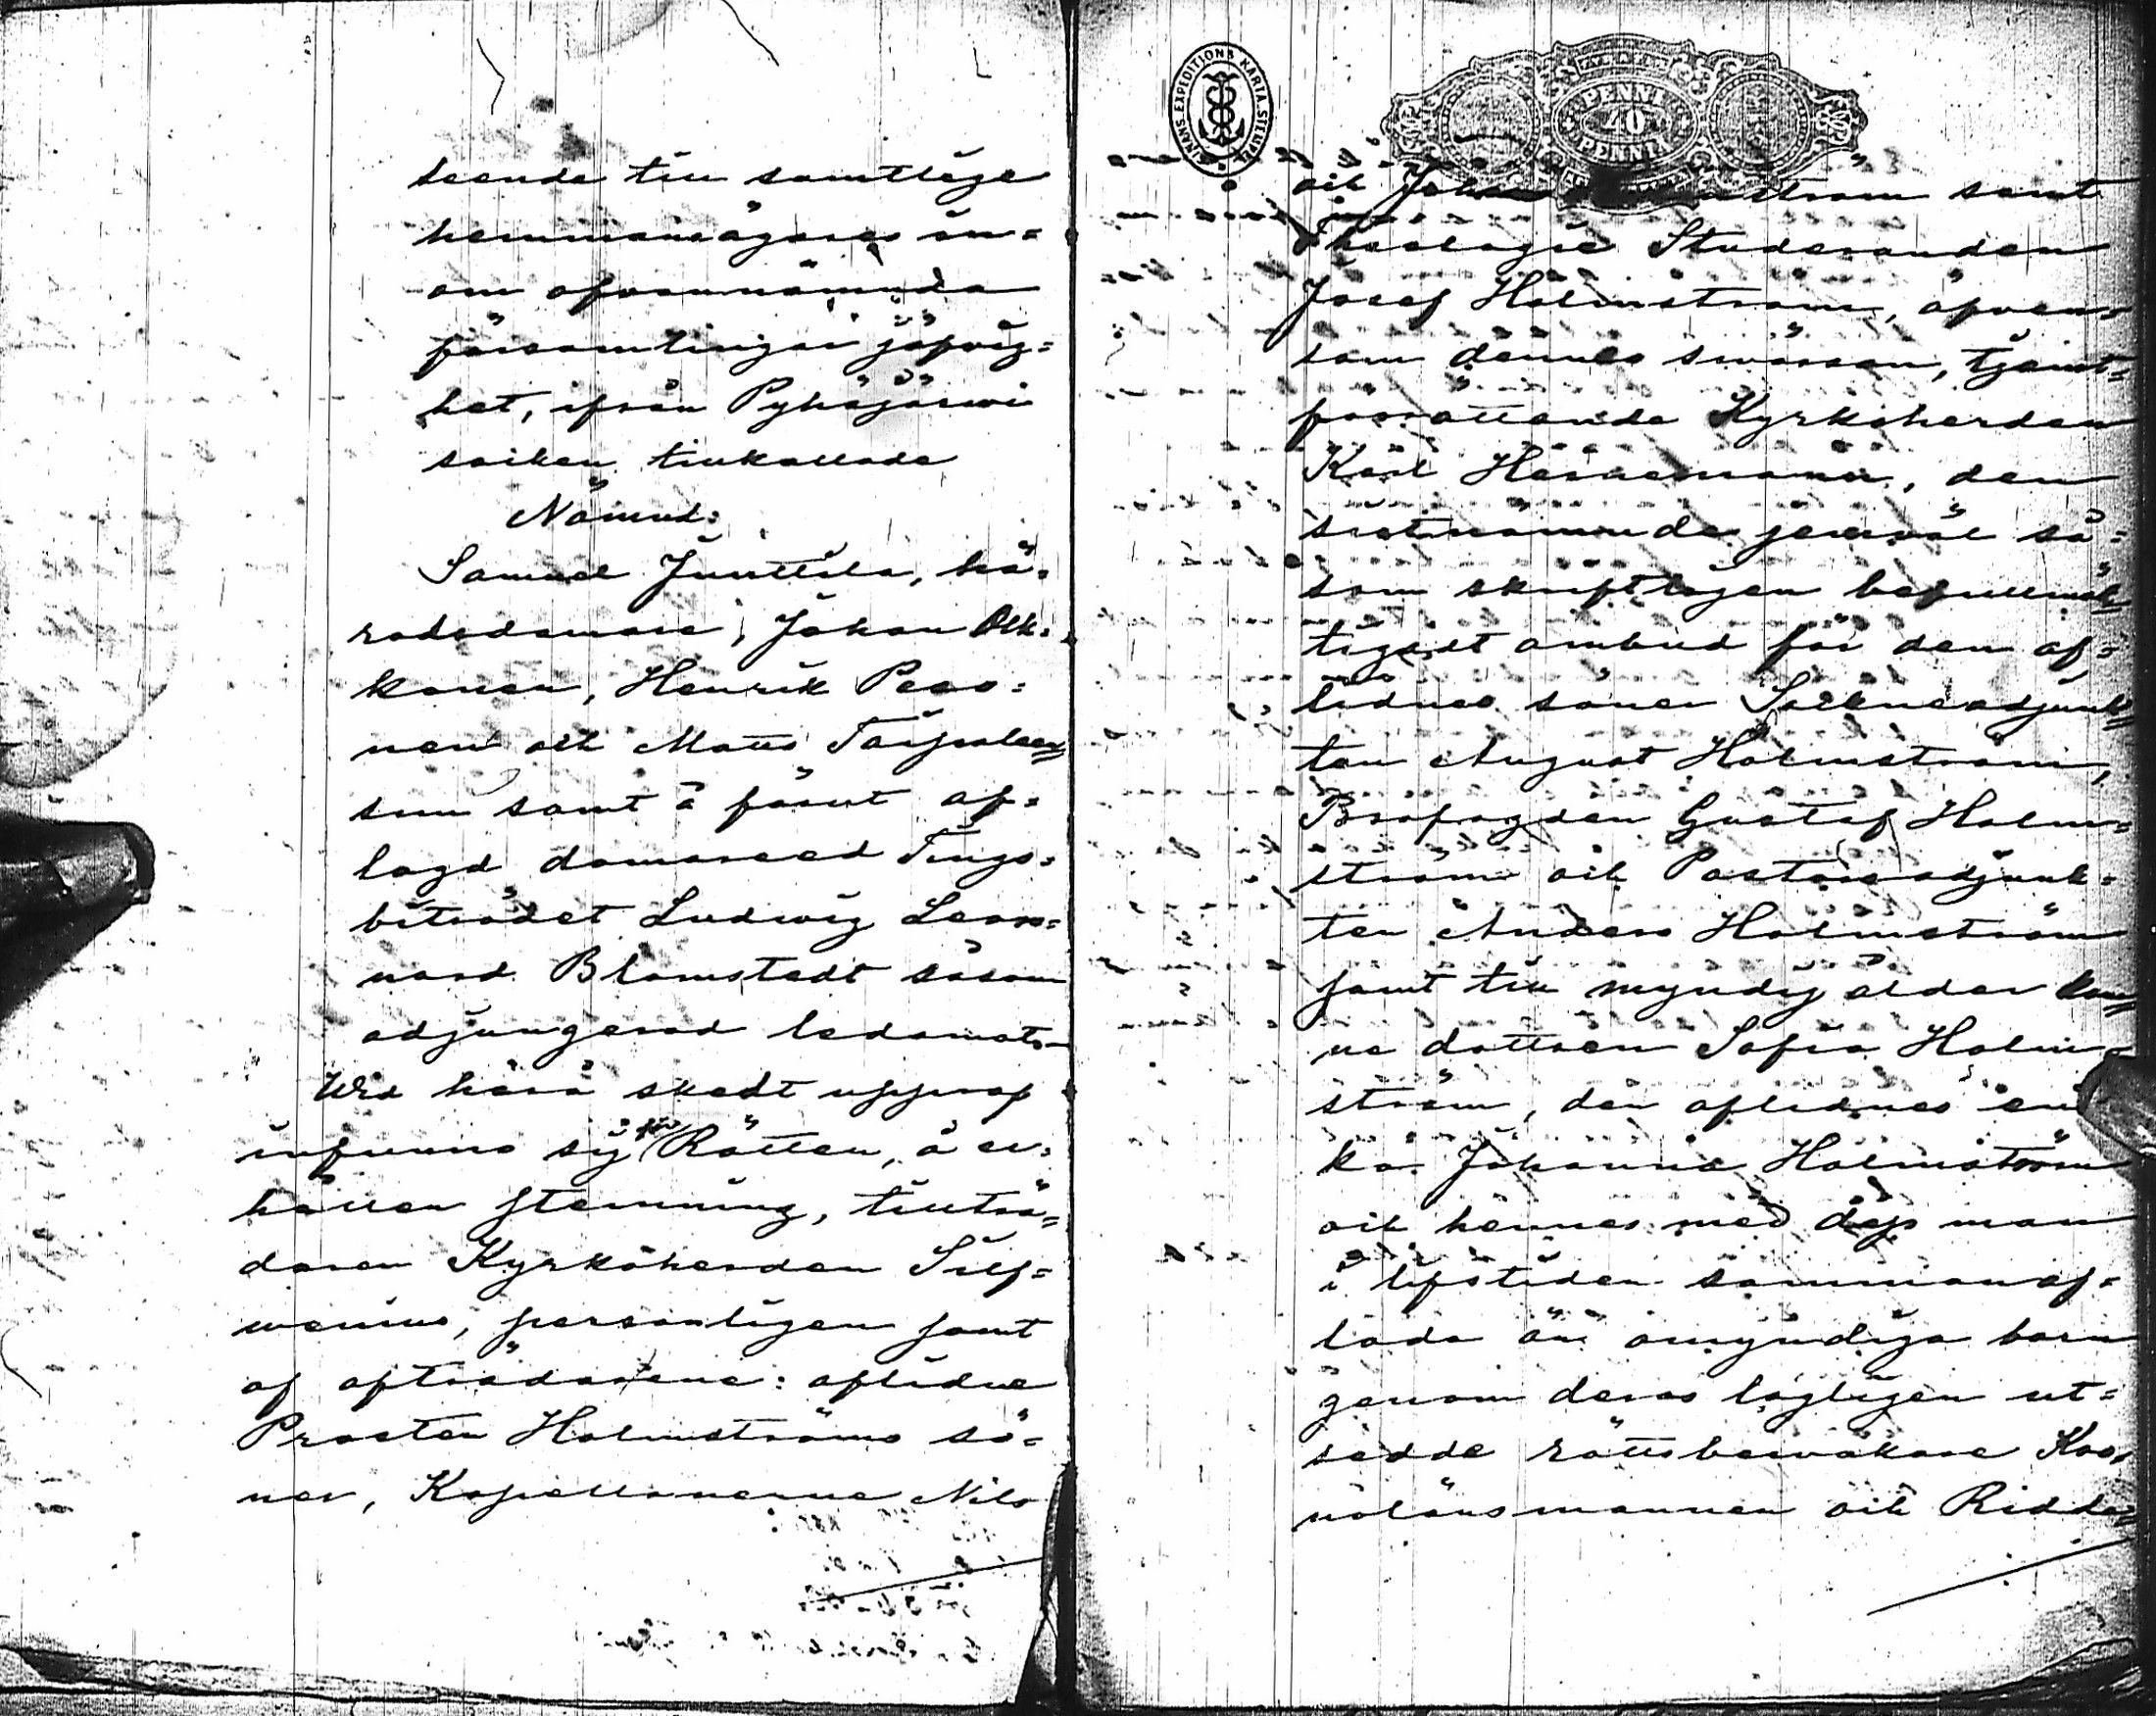 seende till samtlige
hemmansägares in-
om ofvannämnda
församlingar jäfvig-
het, ifrån Pyhäjärwi
socken tillkallade
Nämnd:
Samuel Junttila, hä-
radsdomare, Johan Olk-
konen, Henrik Peso-
nen och Matts Tarjalain-
sun samt å förut af-
lagd domareed Tings-
biträdet Ludwig Leon-
nard Blomstedt såsom
adjungerad ledamot.
Wid härå skedt upprop
infunno sig för Rätten, å er-
hållen stemning, tillträ-
daren Kyrkoherden Snell-
wenius, personligen samt
af afträdarene: aflidne
Prosten Holmströms sö-
ner, Kapellanerne Nils
FINANS EXPEDITIONS KARTA SIGILL
PENNI
40
PENNIÄ
och Johan Holmström samt
Theologie Studeranden
Josef Holmström, äfven-
som dennes swåger, tjenst-
förrättande Kyrkoherden
Karl Heikel, den
sistnämnde jemwäl så-
som skriftligen befullmäk-
tigadt ombud för den af-
lidnes söner Sockneadjunk-
ten August Holmström,
Brofogden Gustaf Holm-
ström och Pastorsadjunk-
ten Anders Holmström
samt till myndig ålder kom-
na dottren Sofia Holm-
ström, den aflidnes en-
ka Johanna Holmström
och hennes med dess man
i lifstiden sammanaf-
lade än omyndiga barn
genom deras lagligen ut-
sedde rättsbewakare Kro-
nolänsmannen och Ridda-